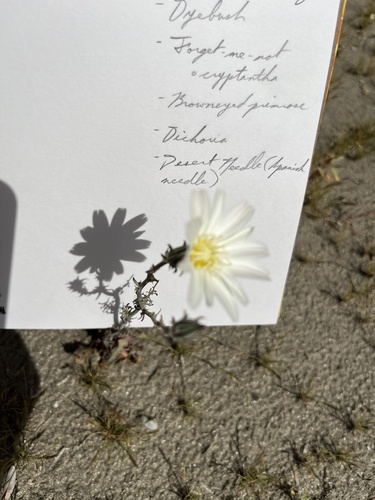 - Dyebush
- Forget-me-not
o cryptantha
- Browneyed primrose
- Dichoria
- Desert Needle (Spanish
needle)